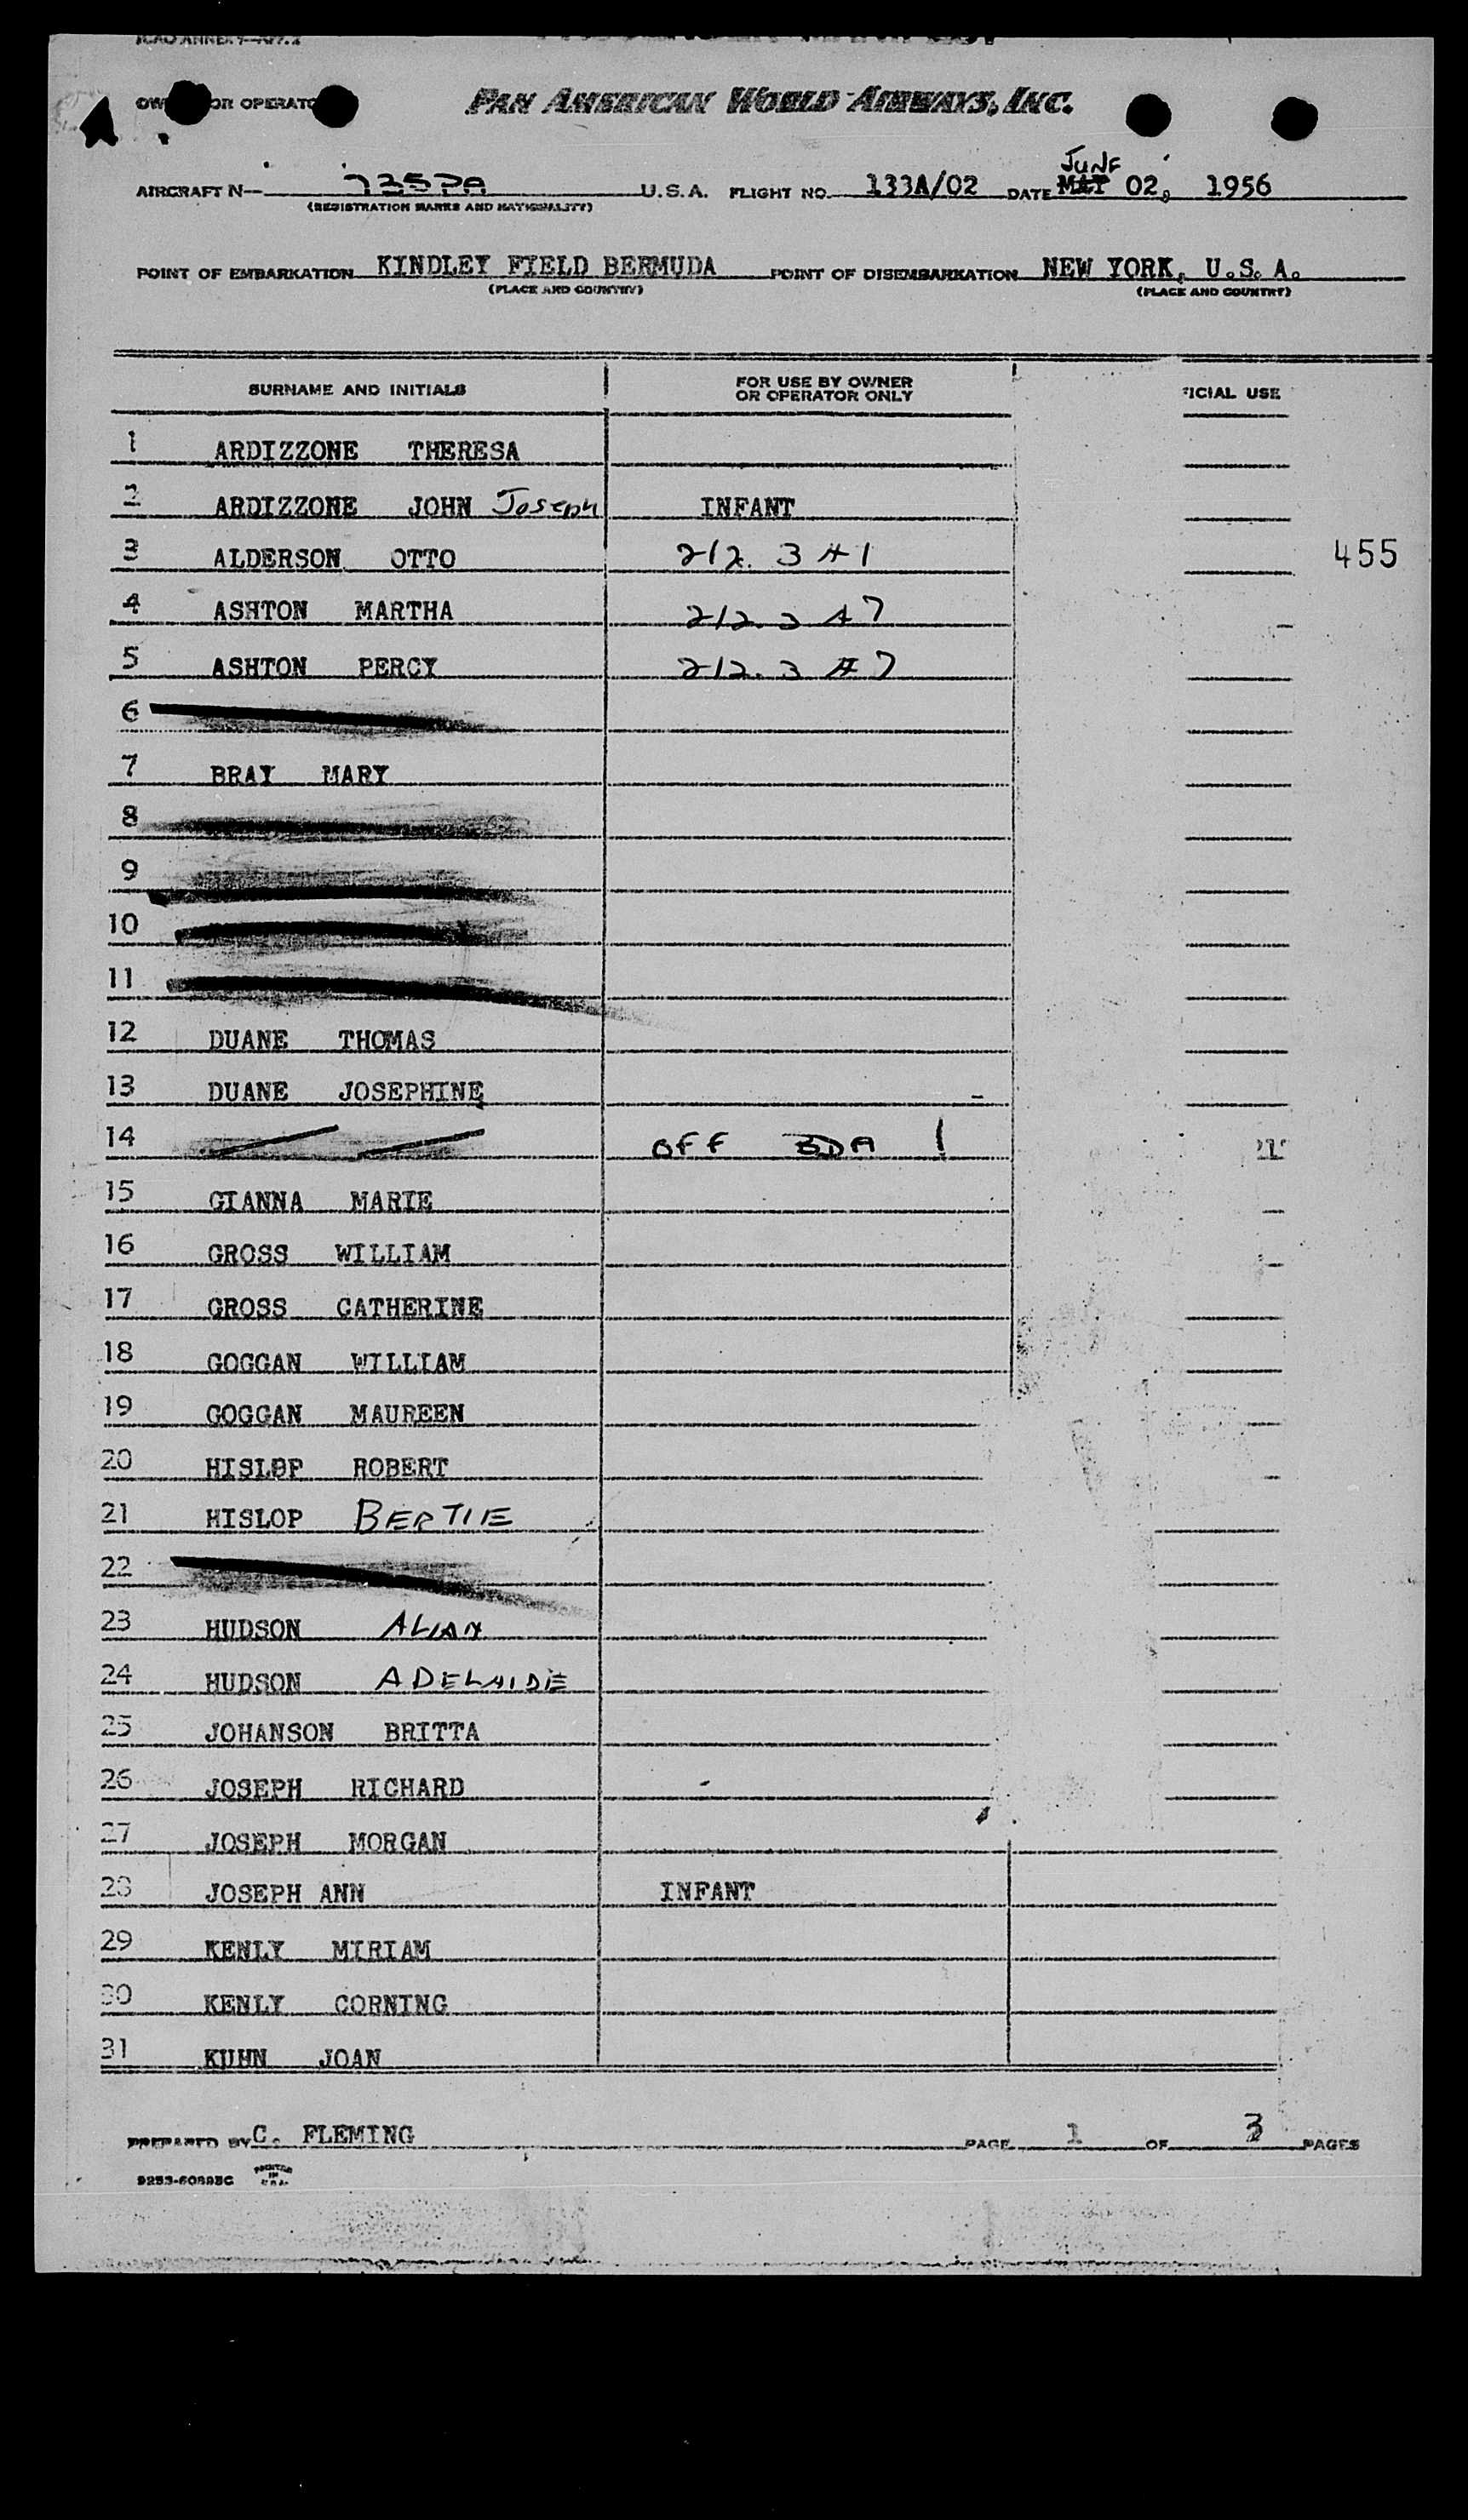 ICAO ANNEX 9—APP. 2
OR OPERATO
PAN AMERICAN WORLD AIRWAYS, INC.
JUNE
AIRCRAFT N— U.S.A. FLIGHT NO. 133A/02 DATE MAY 02, 1956
(REGISTRATION MARKS AND NATIONALITY)
POINT OF EMBARKATION KINDLEY FIELD BERMUDA POINT OF DISEMBARKATION NEW YORK, U.S.A.
(PLACE AND COUNTRY) (PLACE AND COUNTRY)
SURNAME AND INITIALS FOR USE BY OWNER OR OPERATOR ONLY FICIAL USE
1 ARDIZZONE THERESA
2 ARDIZZONE JOHN Joseph INFANT
3 ALDERSON OTTO 212.3 #1 455
4 ASHTON MARTHA 212.3 #7
5 ASHTON PERCY 212.3 #7
6
7 BRAY MARY
8
9
10
11
12 DUANE THOMAS
13 DUANE JOSEPHINE
14 OFF BDA !
15 GIANNA MARIE
16 GROSS WILLIAM
17 GROSS CATHERINE
18 GOGGAN WILLIAM
19 GOGGAN MAUREEN
20 HISLOP ROBERT
21 HISLOP BERTIE
22
23 HUDSON ALIAN
24 HUDSON ADELAIDE
25 JOHANSON BRITTA
26 JOSEPH RICHARD
27 JOSEPH MORGAN
28 JOSEPH ANN INFANT
29 KENLY MIRIAM
30 KENLY CORNING
31 KUHN JOAN
PREPARED BY C. FLEMING PAGE 1 OF 3 PAGES
PRINTED IN U.S.A.